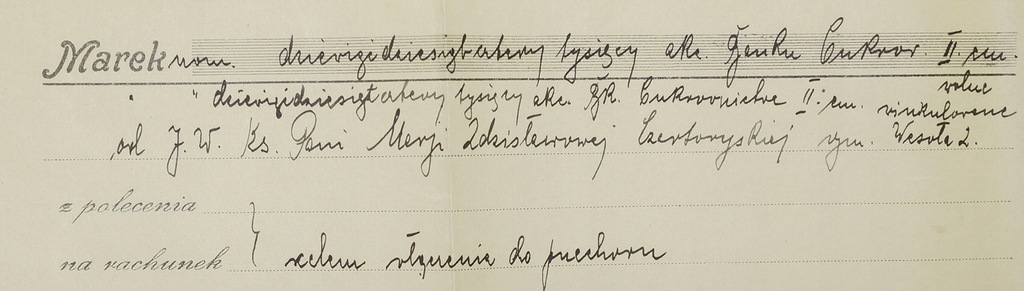 Marek nom. dziewięćdziesiąt cztery tysięcy akc. Banku Cukrow. II. em.
" " dziewięćdziesiąt cztery tysięcy akc. Bk. Cukrownictwa II: em. wolne
winkulowane
od J. W. Ks. Pani Marji Zdzisławowej Czartoryskiej zam. Wesoła 2.
z polecenia
na rachunek } celem włączenia do